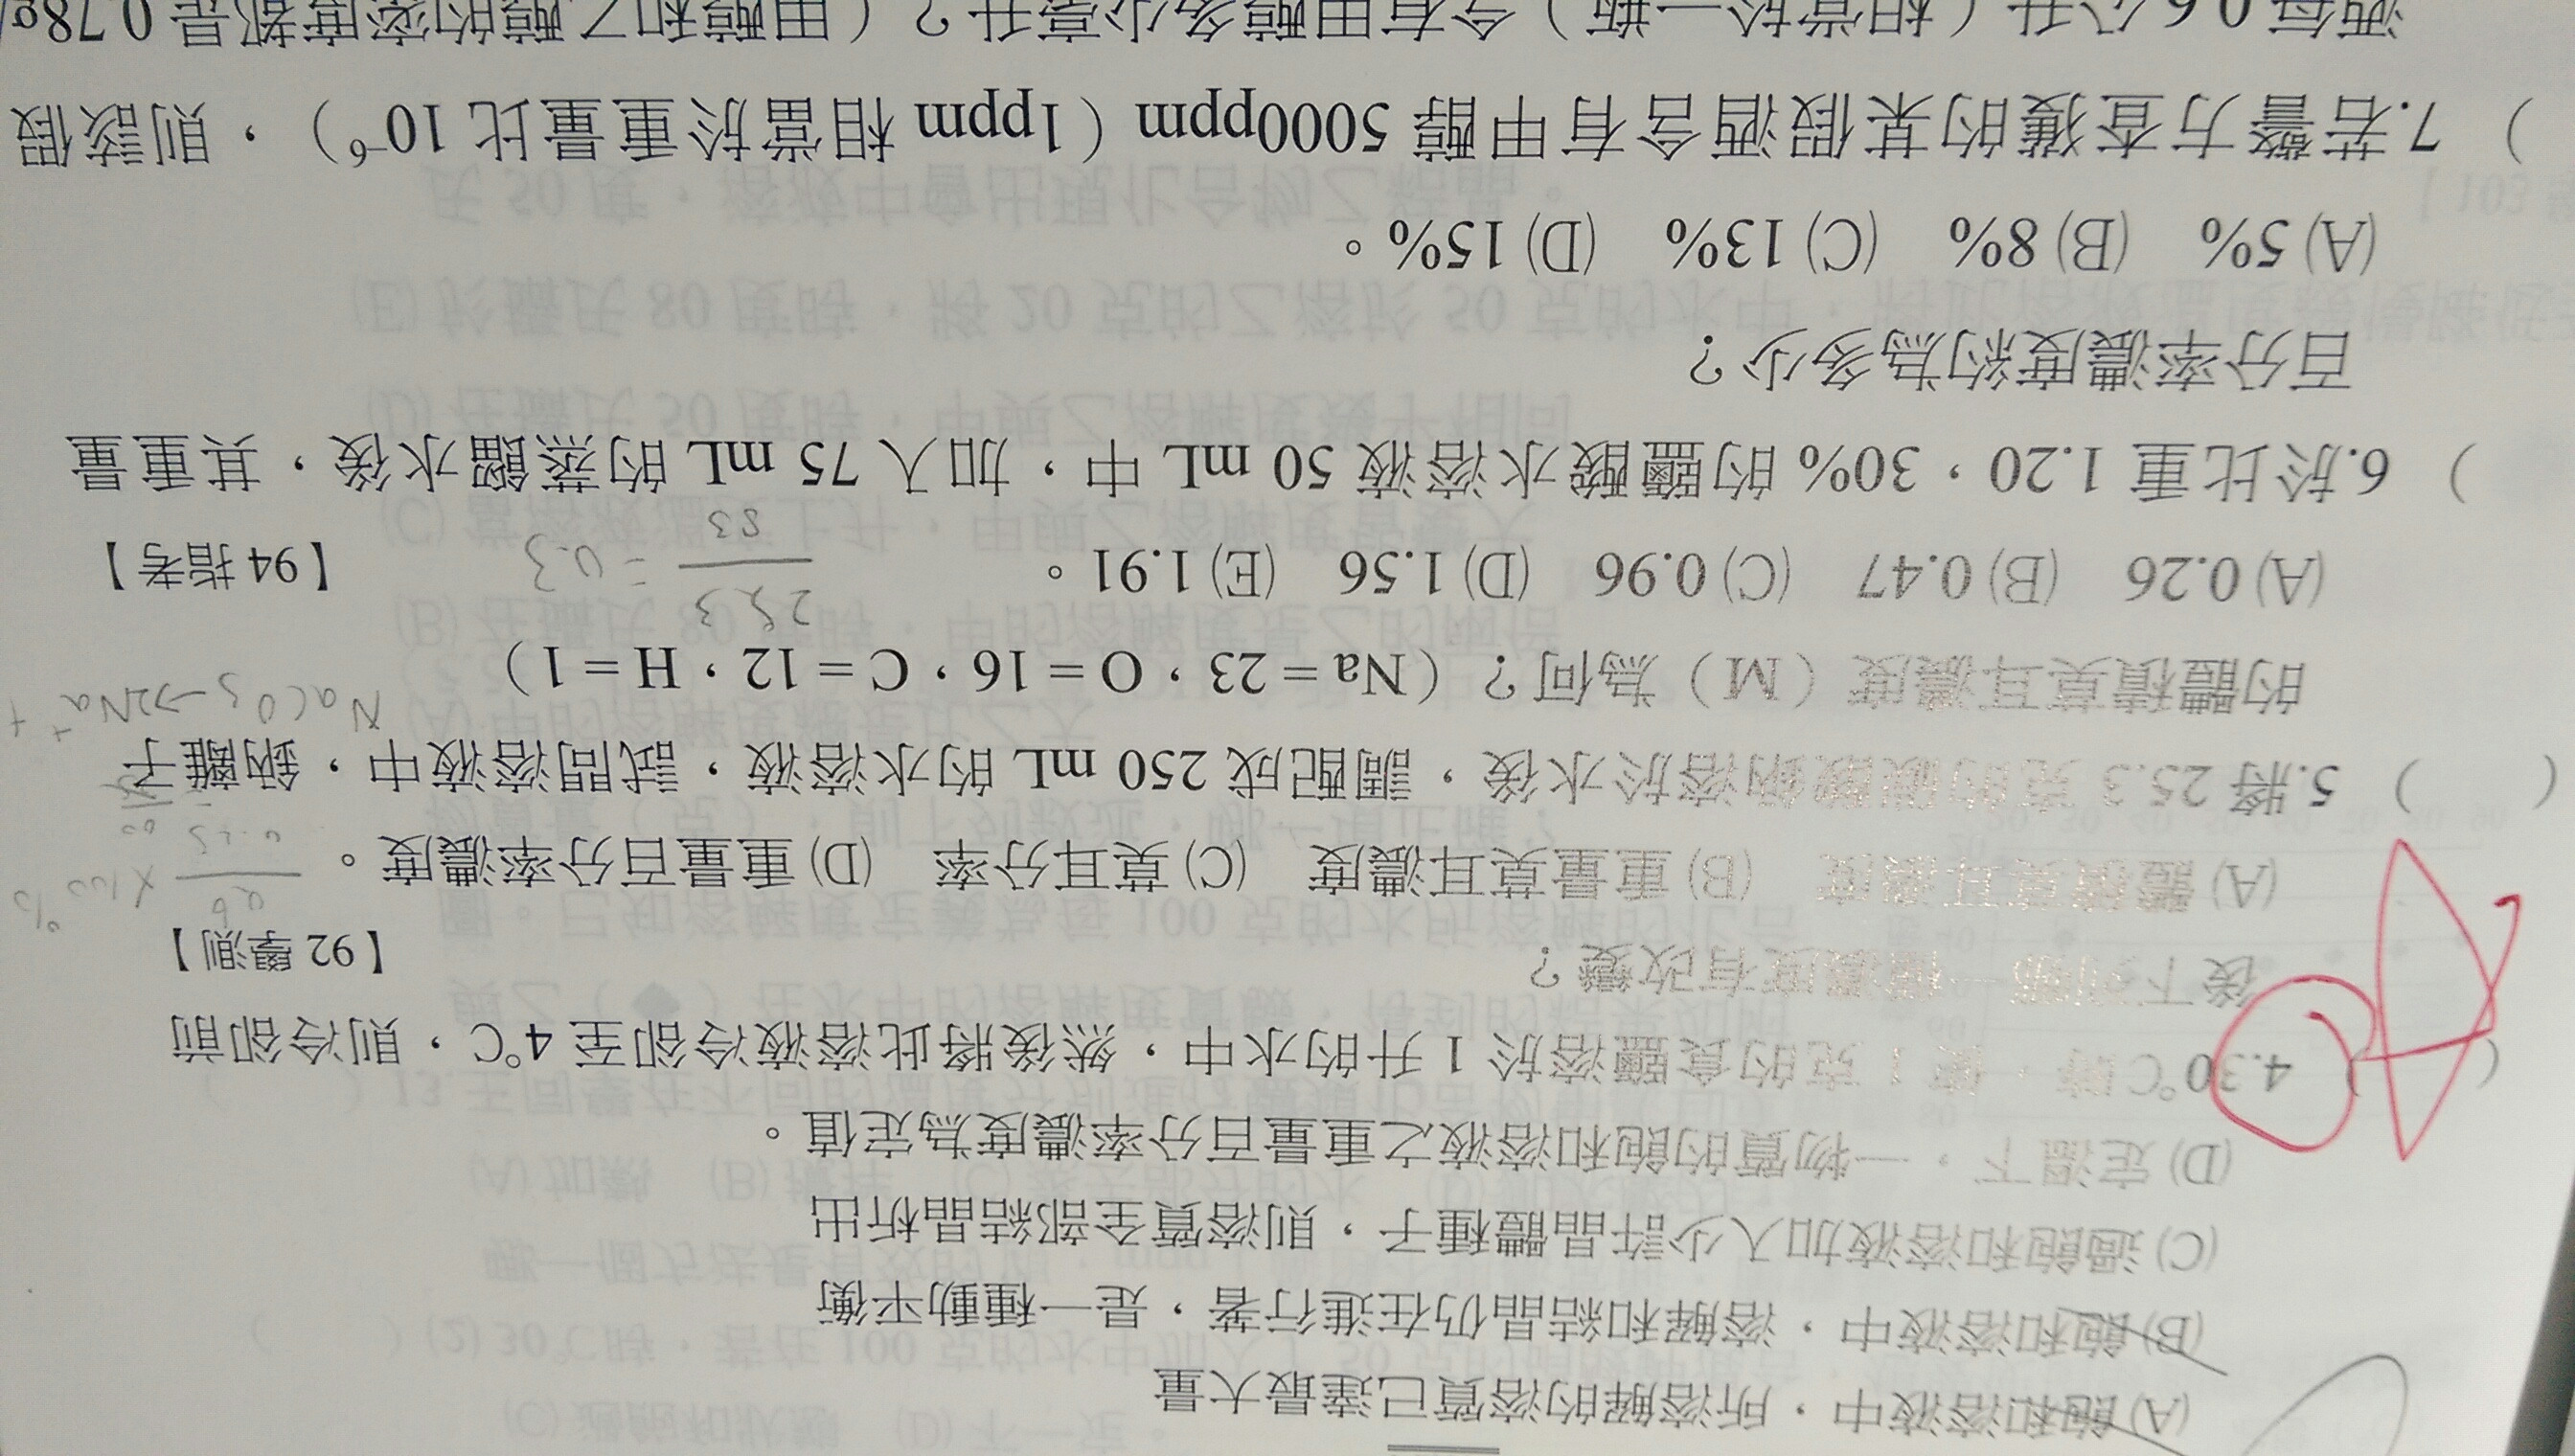 (A) 飽和溶液中，所溶解的溶質已達最大量
(B) 飽和溶液中，溶解和結晶仍在進行著，是一種動平衡
(C) 過飽和溶液加入少許晶體種子，則溶質全部結晶析出
(D) 定溫下，一物質的飽和溶液之重量百分率濃度為定值。
( ) 4. 30℃時，將 1 克的食鹽溶於 1 升的水中，然後將此溶液冷卻至 4℃，則冷卻前
後下列哪一種濃度有改變？ 【92 學測】
(A) 體積莫耳濃度 (B) 重量莫耳濃度 (C) 莫耳分率 (D) 重量百分率濃度。
×100%
( ) 5. 將 25.3 克的碳酸鈉溶於水後，調配成 250 mL 的水溶液，試問溶液中，鈉離子
的體積莫耳濃度（M）為何？（Na = 23，O = 16，C = 12，H = 1）
NaCO3→2Na+ +
(A) 0.26 (B) 0.47 (C) 0.96 (D) 1.56 (E) 1.91。 【94 指考】
25.3
= 0.3
) 6. 於比重 1.20，30% 的鹽酸水溶液 50 mL 中，加入 75 mL 的蒸餾水後，其重量
百分率濃度約為多少？
(A) 5% (B) 8% (C) 13% (D) 15%。
) 7. 若警方查獲的某假酒含有甲醇 5000ppm（1ppm 相當於重量比 10⁻⁶），則該假
酒每 0.6 公升（相當於一瓶）含有甲醇多少毫升？（甲醇和乙醇的密度都是 0.78g